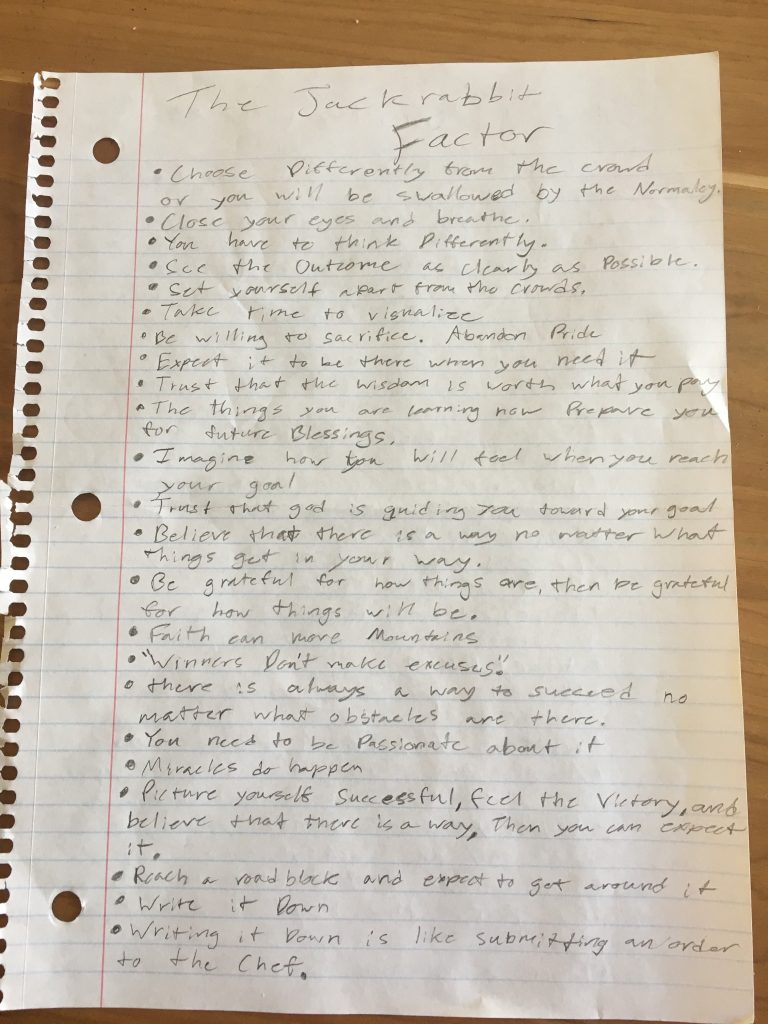 The Jackrabbit
Factor
• Choose Differently from the crowd
or you will be swallowed by the Normaley.
• Close your eyes and breathe.
• You have to think Differently.
• See the Outcome as clearly as Possible.
• Set yourself apart from the crowds.
• Take time to visualize
• Be willing to sacrifice. Abandon Pride
• Expect it to be there when you need it
• Trust that the wisdom is worth what you pay
• The things you are learning now Prepare you
for future Blessings.
• Imagine how you will feel when you reach
your goal
• Trust that god is guiding you toward your goal
• Believe that there is a way no matter what
things get in your way.
• Be grateful for how things are, then be grateful
for how things will be.
• Faith can move Mountains
• "Winners Don't make excuses".
• there is always a way to succeed no
matter what obstacles are there.
• You need to be Passionate about it
• Miracles do happen
• Picture yourself Successful, feel the Victory, and
believe that there is a way, Then you can expect
it.
• Reach a roadblock and expect to get around it
• Write it Down
• Writing it Down is like submitting an order
to the Chef.